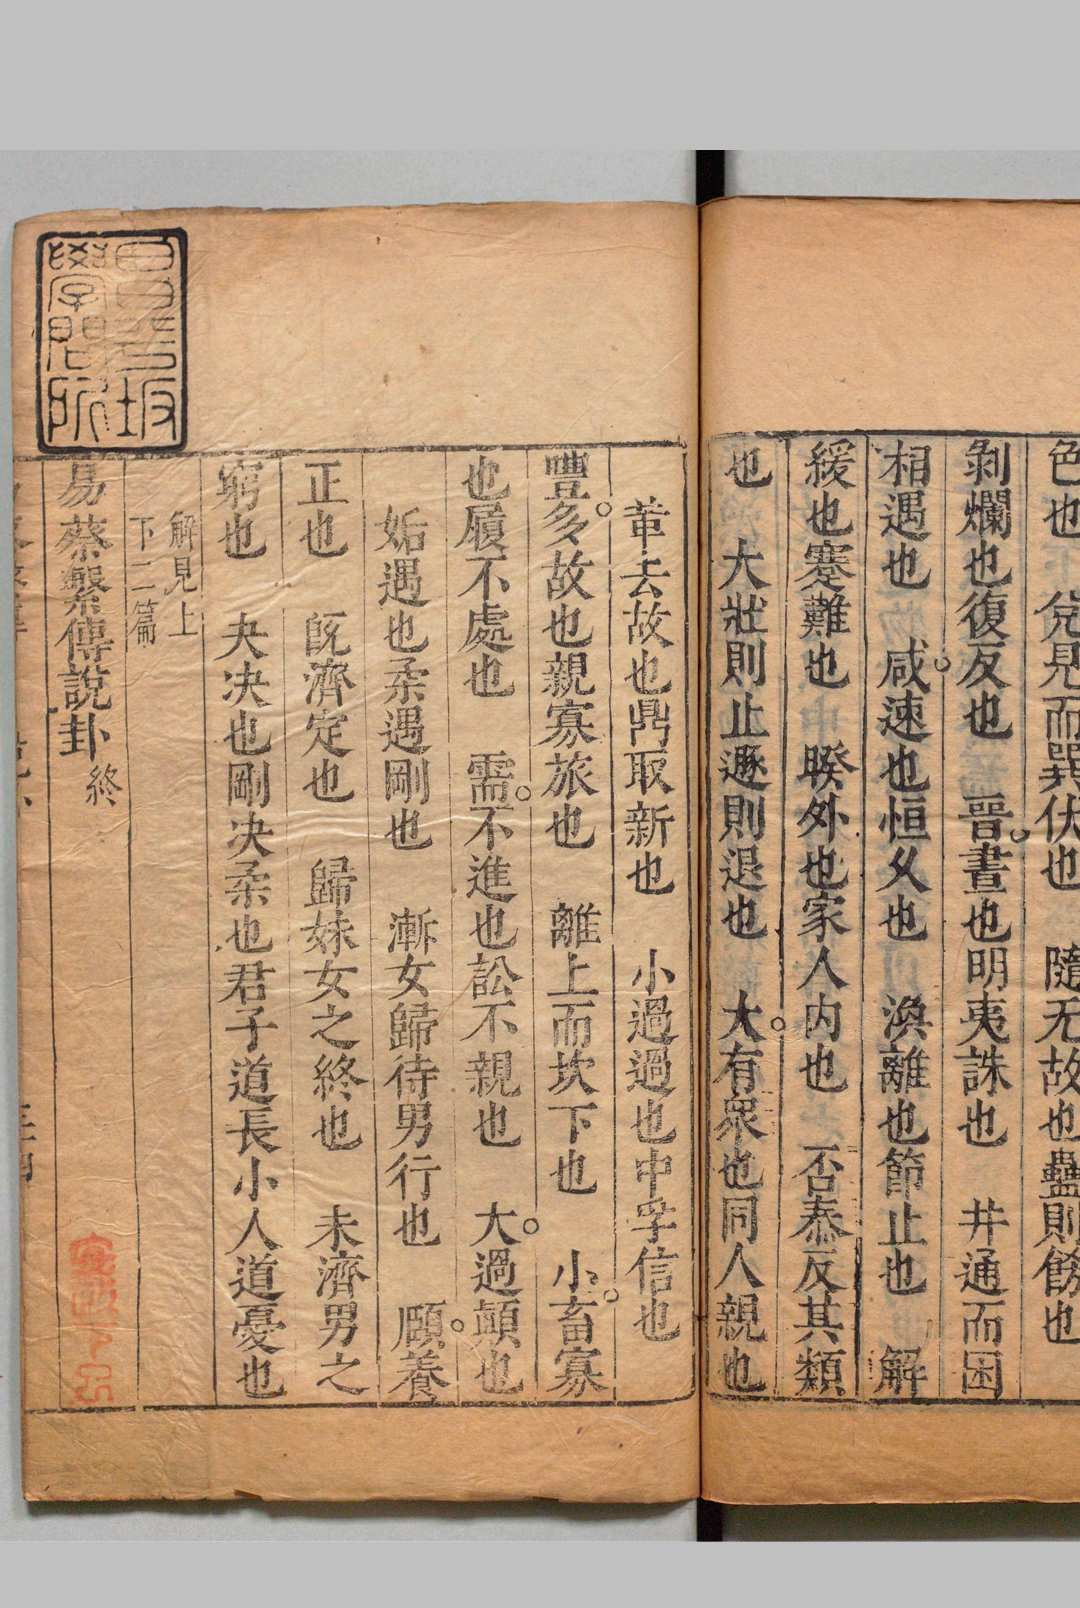 色也 兌見而巽伏也 隨无故也蠱則飭也
剝爛也復反也 晉晝也明夷誅也 井通而困
相遇也 咸速也恒久也 渙離也節止也 解
緩也蹇難也 睽外也家人内也 否泰反其類
也 大壯則止遯則退也 大有眾也同人親也
革去故也鼎取新也 小過過也中孚信也
豐多故也親寡旅也 離上而坎下也 小畜寡
也履不處也 需不進也訟不親也 大過顛也
姤遇也柔遇剛也 漸女歸待男行也 頤養
正也 既濟定也 歸妹女之終也 未濟男之
窮也 夬决也剛决柔也君子道長小人道憂也
解見上
下二篇
易蔡繫傳說卦終
昌平坂
學問所